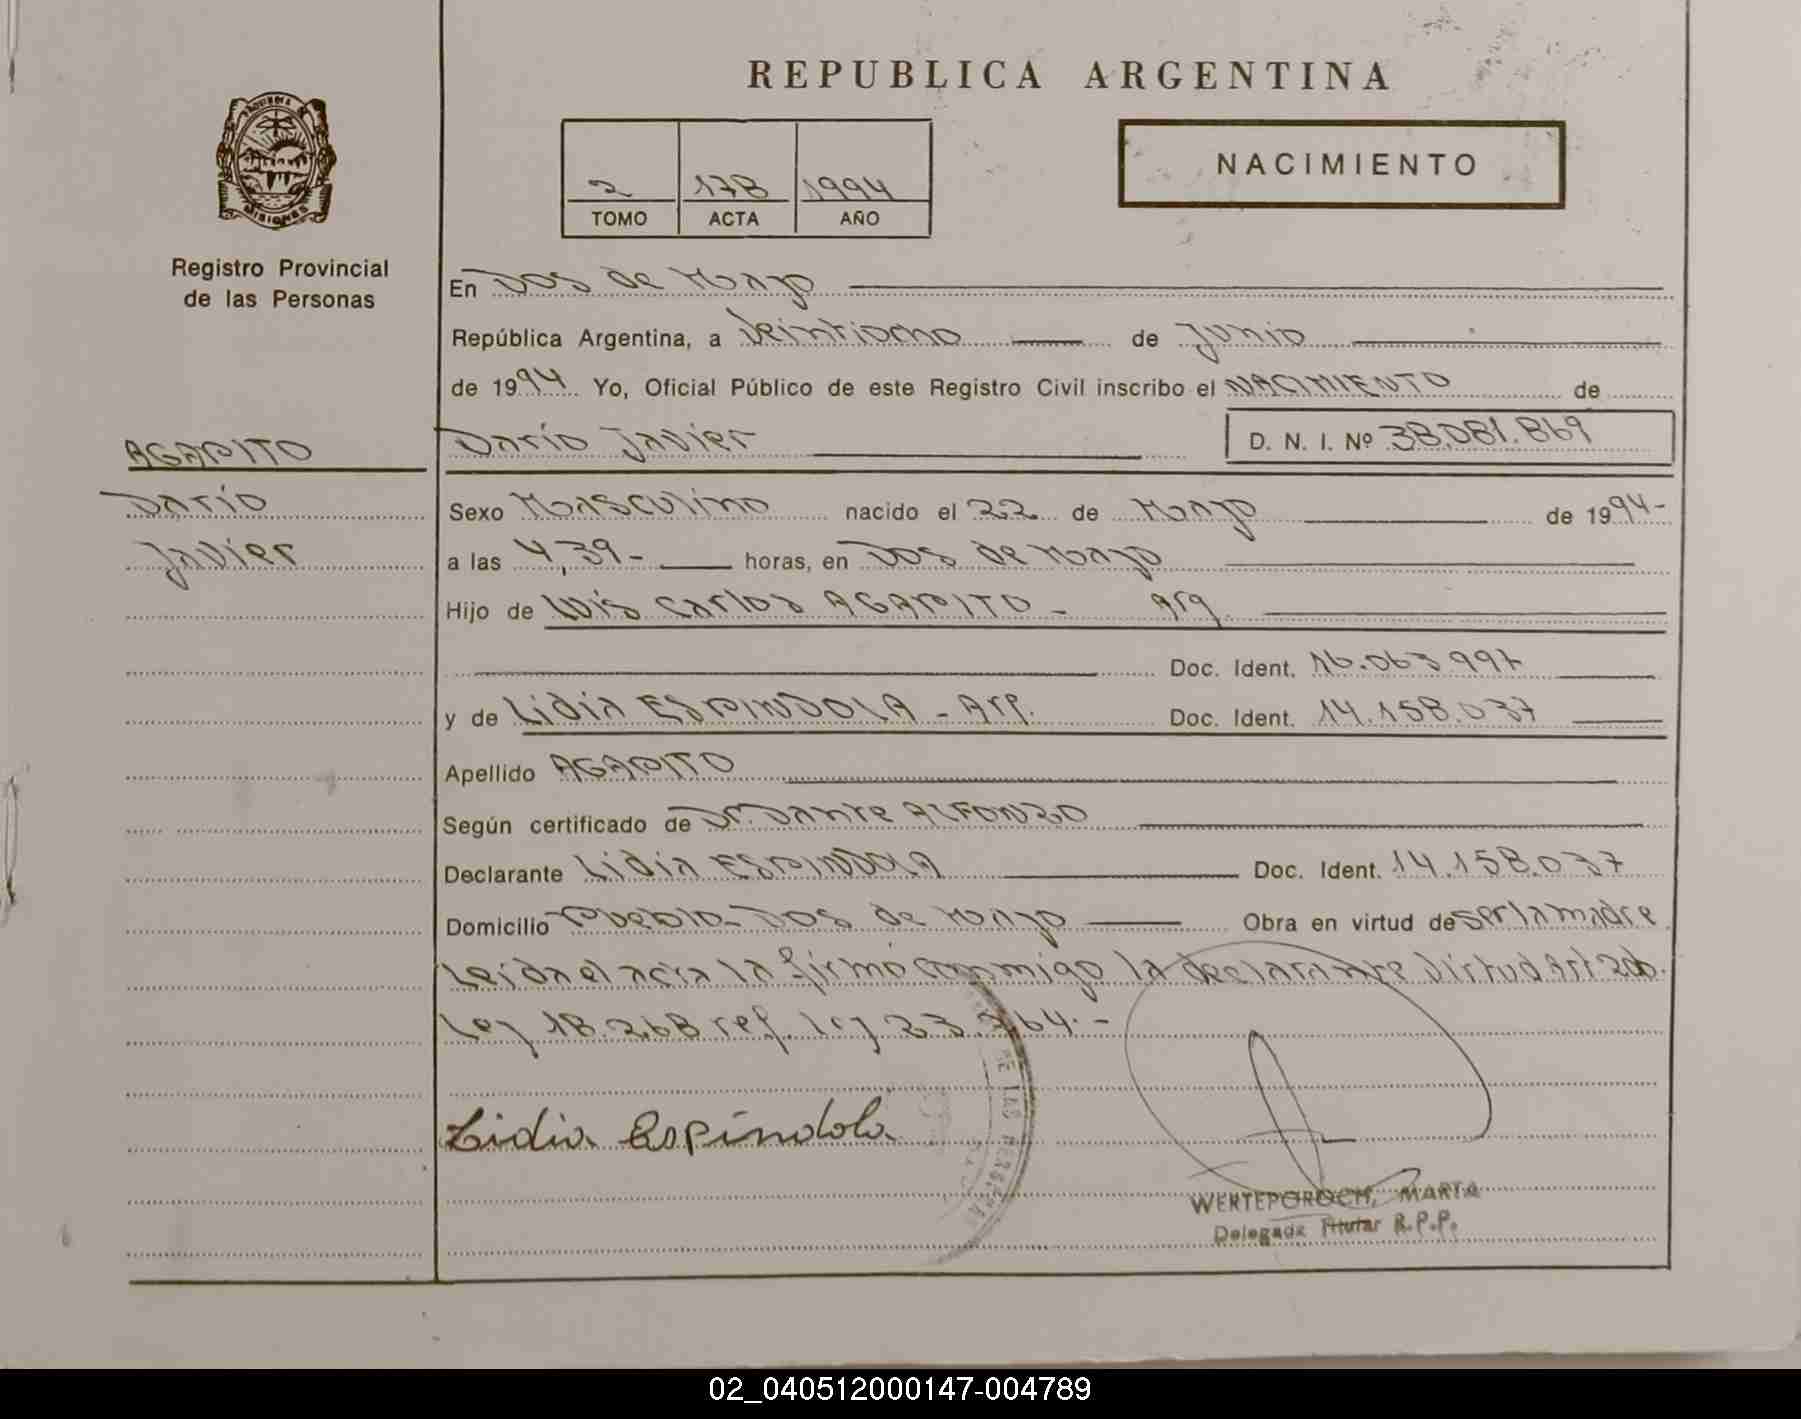 REPUBLICA ARGENTINA
NACIMIENTO
2 178 1994
TOMO ACTA AÑO
PROVINCIA DE
MISIONES
Registro Provincial
de las Personas
En Dos de Mayo
República Argentina, a veintiocho de Junio
de 1994 Yo, Oficial Público de este Registro Civil inscribo el NACIMIENTO de
AGAPITO
Darío Javier D. N. I. Nº 38.081.869
Darío
Javier
Sexo Masculino nacido el 22 de Mayo de 1994-
a las 4,39- horas, en Dos de Mayo
Hijo de Luis Carlos AGAPITO - Arg.
Doc. Ident. 16.063.997
y de Lidia ESPINDOLA - Arg. Doc. Ident. 14.158.037
Apellido AGAPITO
Según certificado de Dr. Dante ALFONZO
Declarante Lidia ESPINDOLA Doc. Ident. 14.158.037
Domicilio Pueblo- Dos de Mayo Obra en virtud de ser la madre
Leida el acta la firmó conmigo la declarante. Virtud Art
Ley 18.268 ref. Ley 23.264.-
Lidia Espíndola
DE LAS PERSONAS
WERTEPOROCH, MARTA
Delegada Titular R.P.P.
02_040512000147-004789